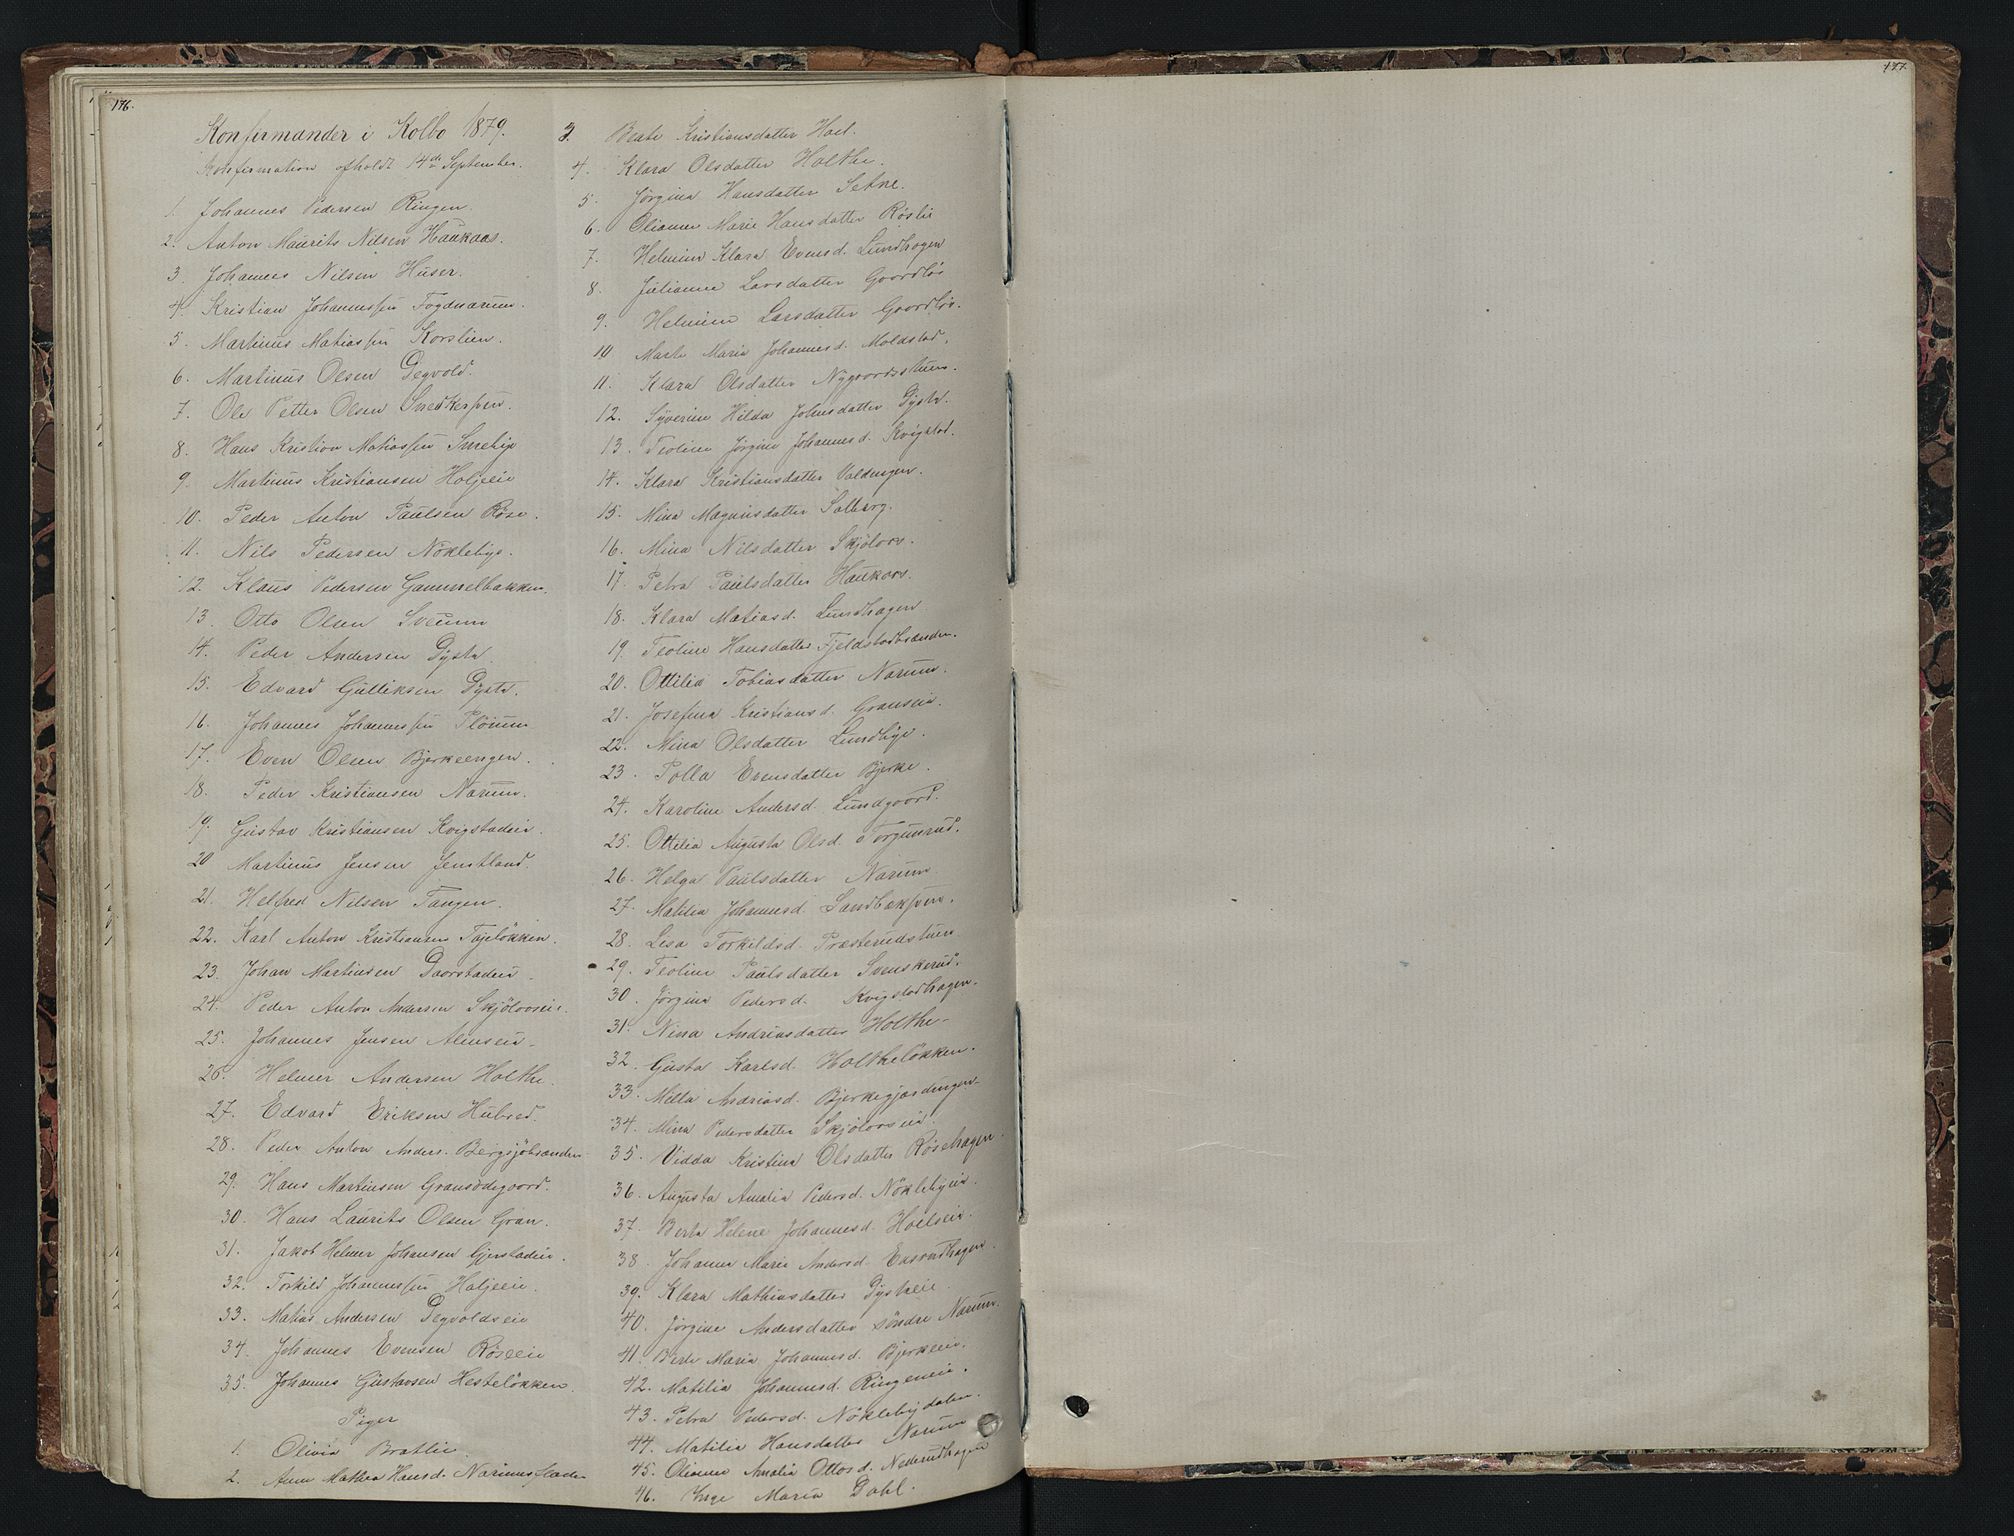 176.
Konfirmander i Kolbo 1879.
Konfirmation afholdt 14de September.
1. Johannes Pedersen Ringen.
2. Anton Maurits Nilsen Haukaas.
3. Johannes Nilsen Huser.
4. Kristian Johannessen Fogdnarum.
5. Martinus Matiassen Korslien.
6. Martinus Olsen Degvold.
7. Ole Petter Olsen
8. Hans Kristian Matiassen Smeby
9. Martinus Kristiansen Holjeie
10. Peder Anton Paulsen Røse.
11. Nils Pedersen Nøkleby.
12. Klaus Pedersen Gammelbakken.
13. Otto Olsen Sveum
14. Peder Andersen Dyste.
15. Edvard Gulliksen Dyste.
16. Johannes Johannessen Fløium
17. Even Olsen Bjerkeengen.
18. Peder Kristiansen Narum.
19. Gustav Kristiansen Kvigstadeie.
20 Martinus Jensen Jenstland.
21. Helfred Nilsen Tangen.
22. Karl Anton Kristiansen Tajeløkken.
23. Johan Martinsen Daarstadeie
24. Peder Anton Andersen Skjølaaseie.
25. Johannes Jensen Almseie
26. Helmer Andersen Holthe.
27. Edvard Eriksen Hubred.
28. Peder Anton Anders. Bergsjøbrænden
29. Hans Martinsen Gransødegaard.
30. Hans Laurits Olsen Gran.
31. Jakob Helmer Johansen Gjerstadeie.
32. Torkild Johannessen Holjeeie.
33. Matias Andersen Degvoldseie
34. Johannes Evensen Røseeie
35. Johannes Gustavsen Hesteløkken.
Piger
1. Olivia Bratlie.
2. Anne Mathea Hansd. Narums
3. Beate Kristiansdatter Hoel.
4. Klara Olsdatter Holthe.
5. Jørgina Hansdatter Setne.
6. Olianna Marie Hansdatter Røslie
7. Helmine Klara Evensd. Lundhagen
8. Julianna Larsdatter Gaardløs
9. Helmine Larsdatter Gaardløs.
10 Marte Maria Johannesd. Moldstad.
11. Klara Olsdatter Nygaardsstuen.
12. Syverine Hilda Johnsdatter Dyste.
13. Teoline Jørgine Johannesd. Kvigstad.
14. Klara Kristiansdatter Valdengen.
15. Mina Magnusdatter Solberg.
16. Mina Nilsdatter Skjølaas.
17. Petra Paulsdatter Haukaas.
18. Klara Matiasd. Lundhagen
19. Teoline Hansdatter Fjeldstadbrænden.
20. Ottilia Tobiasdatter Narum.
21. Josefina Kristiansd. Granseie.
22. Mina Olsdatter Lundby.
23. Polla Evensdatter Bjerke.
24. Karoline Andersd. Lundgaard.
25. Ottilia Augusta Olsd. Torgunrud.
26. Helga Paulsdatter Narum
27. Matilia Johannesd. Sandbækstuen.
28. Lisa Torkildsd. Præsterudstuen
29. Teoline Paulsdatter Svenskerud.
30. Jørgine Pedersd. Kvigstadhagen.
31. Nina Andriasdatter Holthe
32. Gusta Karlsd. Holtheløkken.
33. Milla Andriasd. Bjerkegjerdingen
34. Mina Pedersdatter Skjølaaseie.
35. Vidda Kristina Olsdatter Røsehagen.
36. Augusta Amalia Pedersd. Nøklebyeie.
37. Berta Helene Johannesd. Hoelseie.
38. Johanna Marie Andersd.
39. Klara Mathiasdatter Dysteeie
40. Jørgine Andersdatter søndre Narum.
41. Berte Maria Johannesd. Bjerkeeie.
42. Matilia Johannesd. Ringeneie.
43. Petra Pedersd. Nøklebydalen.
44. Matilia Hansdatter Narum
45. Olianne Amalia Ottosd. Nederudhagen
46. Inge Maria Dahl.
177.